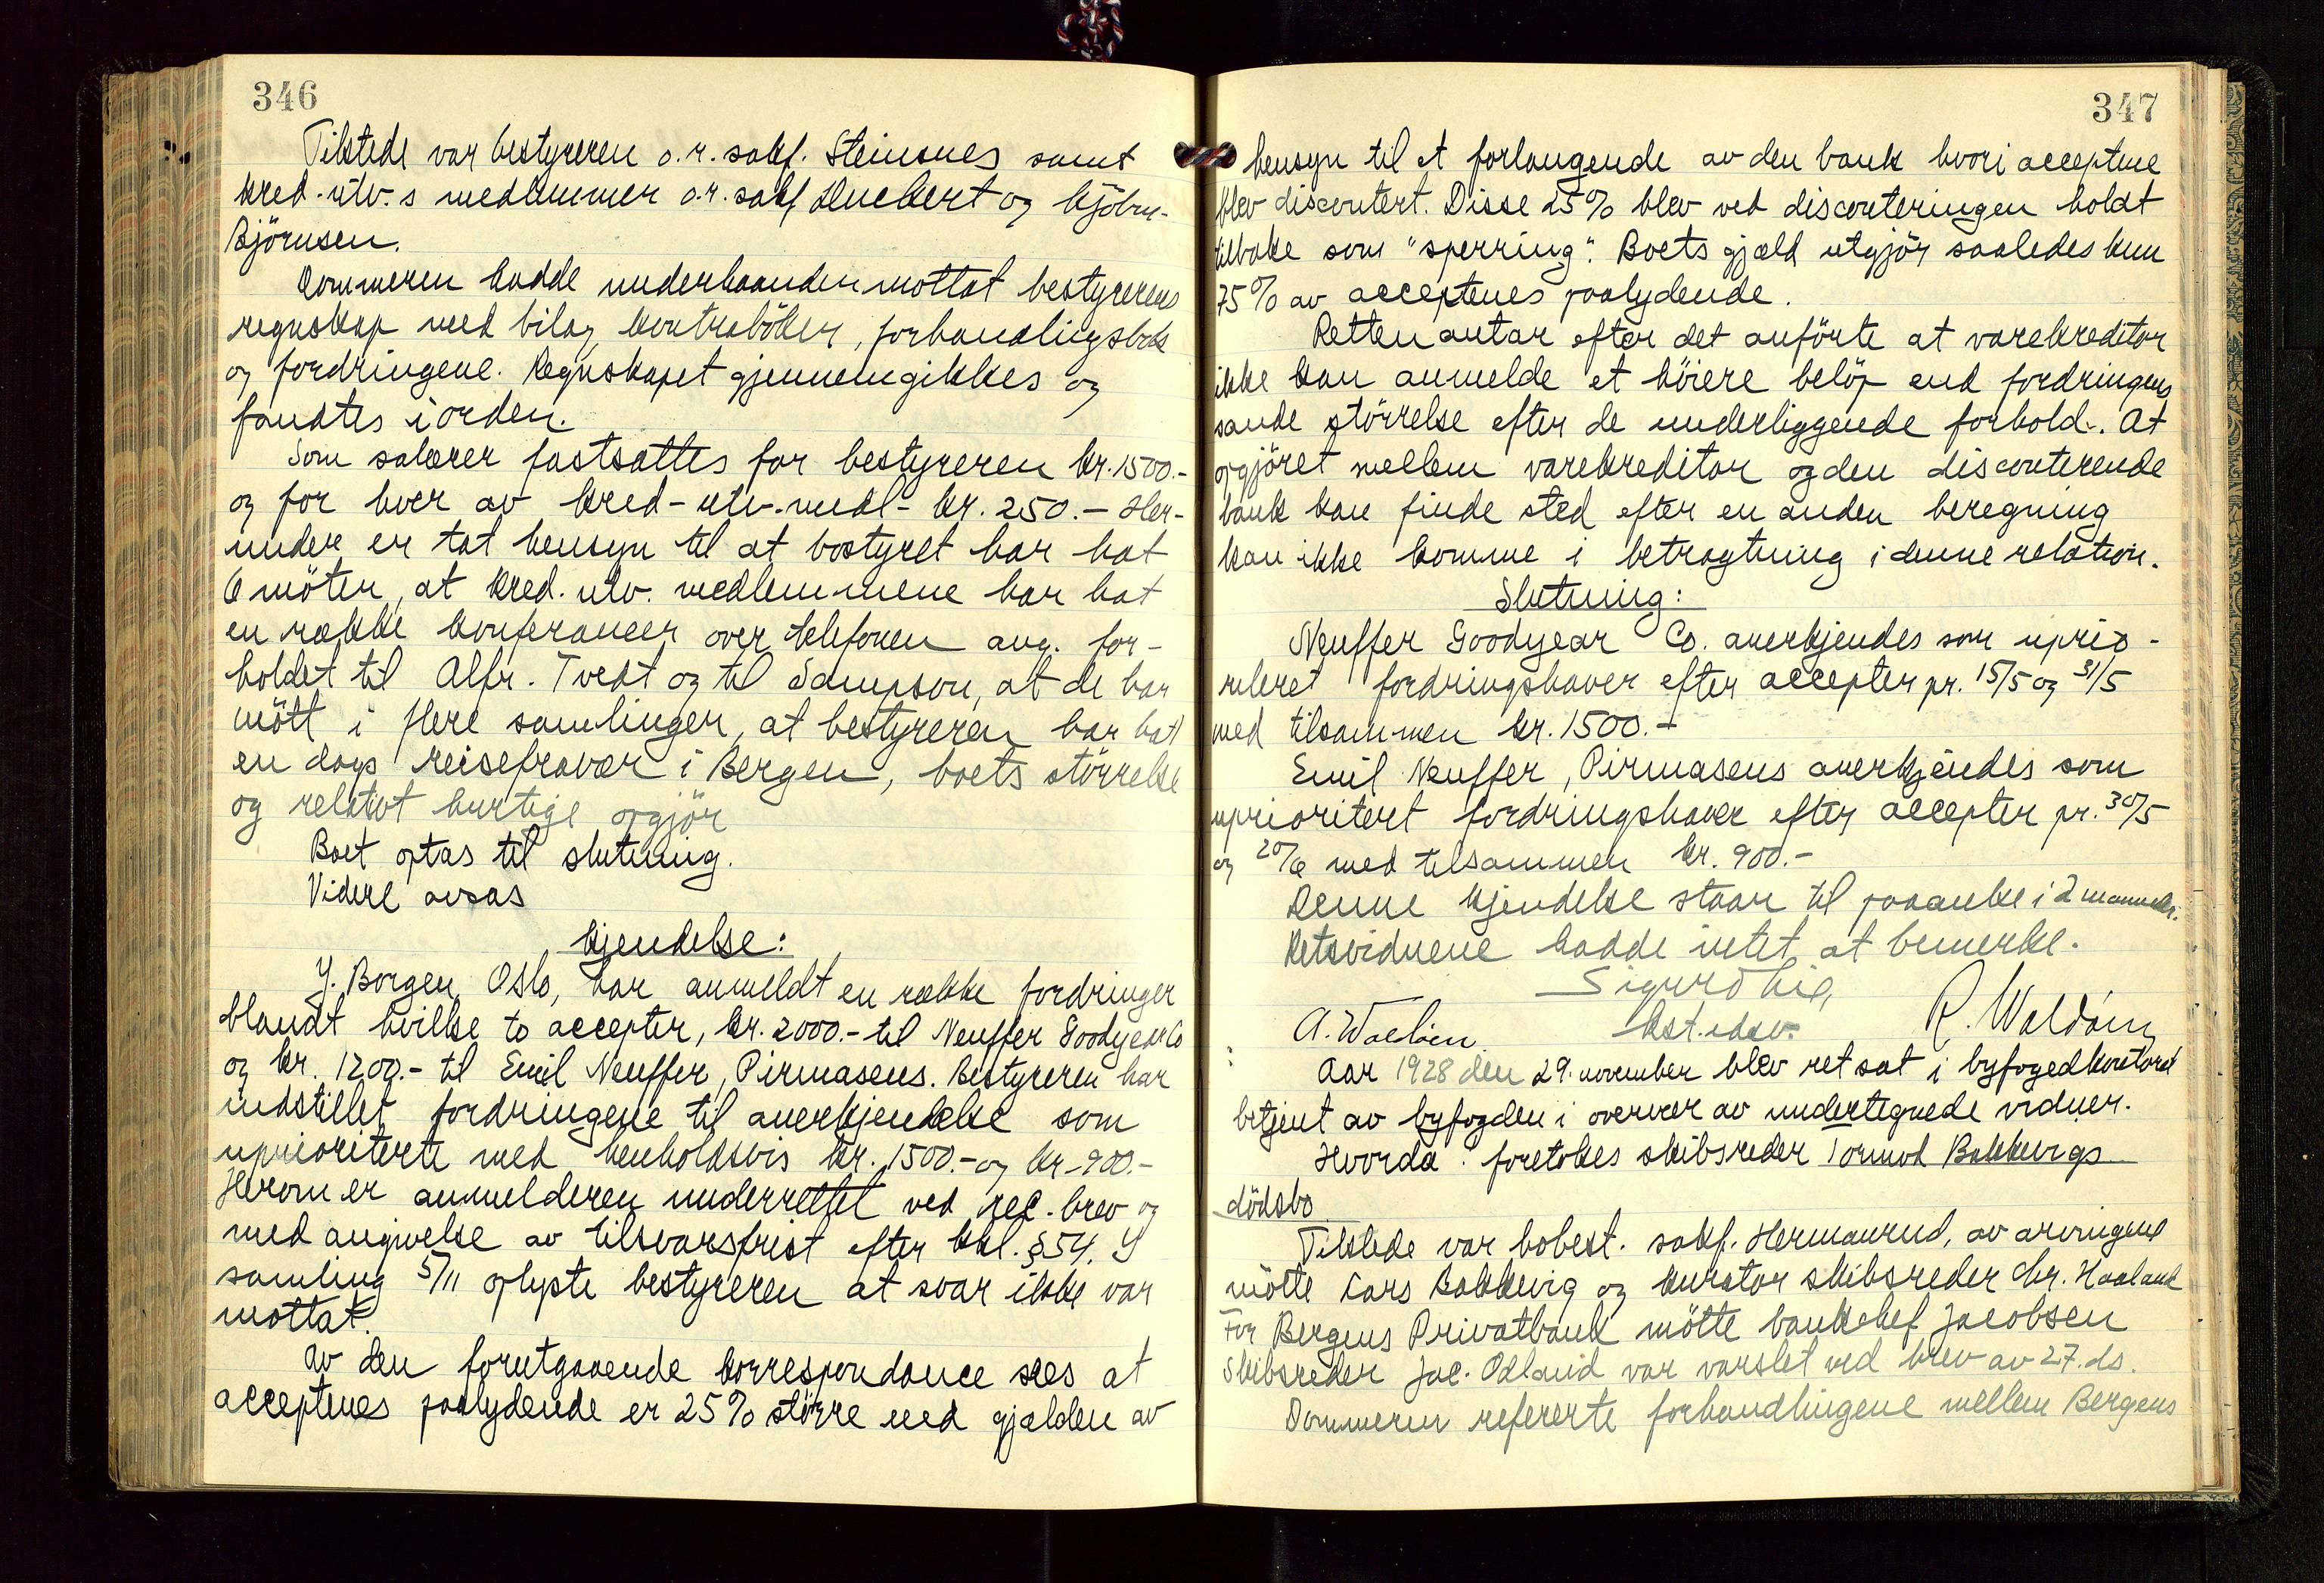 346
Tilstede var bestyreren o.r. sakf. Steinsnes samt
kred.utv.s medlemmer o.r. sakf Huckert og kjöbm.
Björnsen.
Dommeren hadde underhaanden mottat bestyrerens
regnskap med bilag, kontraböker, forhandlingsbok
og fordringene. Regnskapet gjennemgikkes og
fandtes i orden.
Som salærer fastsattes for bestyreren kr. 1500.-
og for hver av kred-utv.medl- kr. 250.- Her-
under er tat hensyn til at bostyret har hat
6 möter, at kred. utv. medlemmene har hat
en række konferancer over telefonen ang. for-
holdet til Alfr. Tvedt og til Sampson, at de har
mött i flere samlinger, at bestyreren har hat
en dags reisefravær i Bergen, boets störrelse
og relativt hurtige opgjör
Boet optas til slutning.
Videre avsas
Kjendelse:
J. Borgen, Oslo, har anmeldt en række fordringer
blandt hvilke to accepter, kr. 2000.- til Neuffer Goodyear Co
og kr. 1200.- til Emil Neuffer, Pirmasens. Bestyreren har
indstillet fordringene til anerkjendelse som
uprioriterte med henholdsvis kr. 1500.- og kr. 900.-
Herom er anmelderen underrettet ved rec. brev og
med angivelse av tilsvarsfrist efter kkl. § 54. I
samling 5/11 oplyste bestyreren at svar ikke var
mottat.
Av den forutgaaende korrespondance sees at
acceptenes paalydende er 25% större end gjælden av
347
hensyn til et forlangende av den bank hvori acceptene
blev discontert. Disse 25% blev ved disconteringen holdt
tilbake som "sperring". Boets gjæld utgjör saaledes kun
75% av acceptenes paalydende.
Retten antar efter det anförte at varekreditor
ikke kan anmelde et höiere belöp end fordringens
sande störrelse efter de underliggende forhold. At
opgjöret mellem varekreditor og den disconterende
bank kan finde sted efter en anden beregning
kan ikke komme i betragtning i denne relation.
Slutning:
Neuffer Goodyear Co. anerkjendes som uprio-
riteret fordringshaver efter accepter pr. 15/5 og 31/5
med tilsammen kr. 1500.-
Emil Neuffer, Pirmasens anerkjendes som
uprioritert fordringshaver efter accepter pr. 30/5
og 20/6 med tilsammen kr. 900.-
Denne kjendelse staar til paaanke i 2 maaneder.
Retsvidnene hadde intet at bemerke.
Sigurd
A. Waldein
kst. R. Waldein
Aar 1928 den 29. november blev ret sat i byfogedkontoret
betjent av byfogden i overvær av undertegnede vidner.
Hvorda: foretokes skibsreder Tormod Bakkevigs
dödsbo
Tilstede var bobest. sakf. Hermanrud, av arvingene
mötte Lars Bakkevig og kurator skibsreder Chr. Haaland
For Bergens Privatbank mötte bankchef Jacobsen
Skibsreder Jac. Odland var varslet ved brev av 27. ds.
Dommeren refererte forhandlingene mellem Bergens